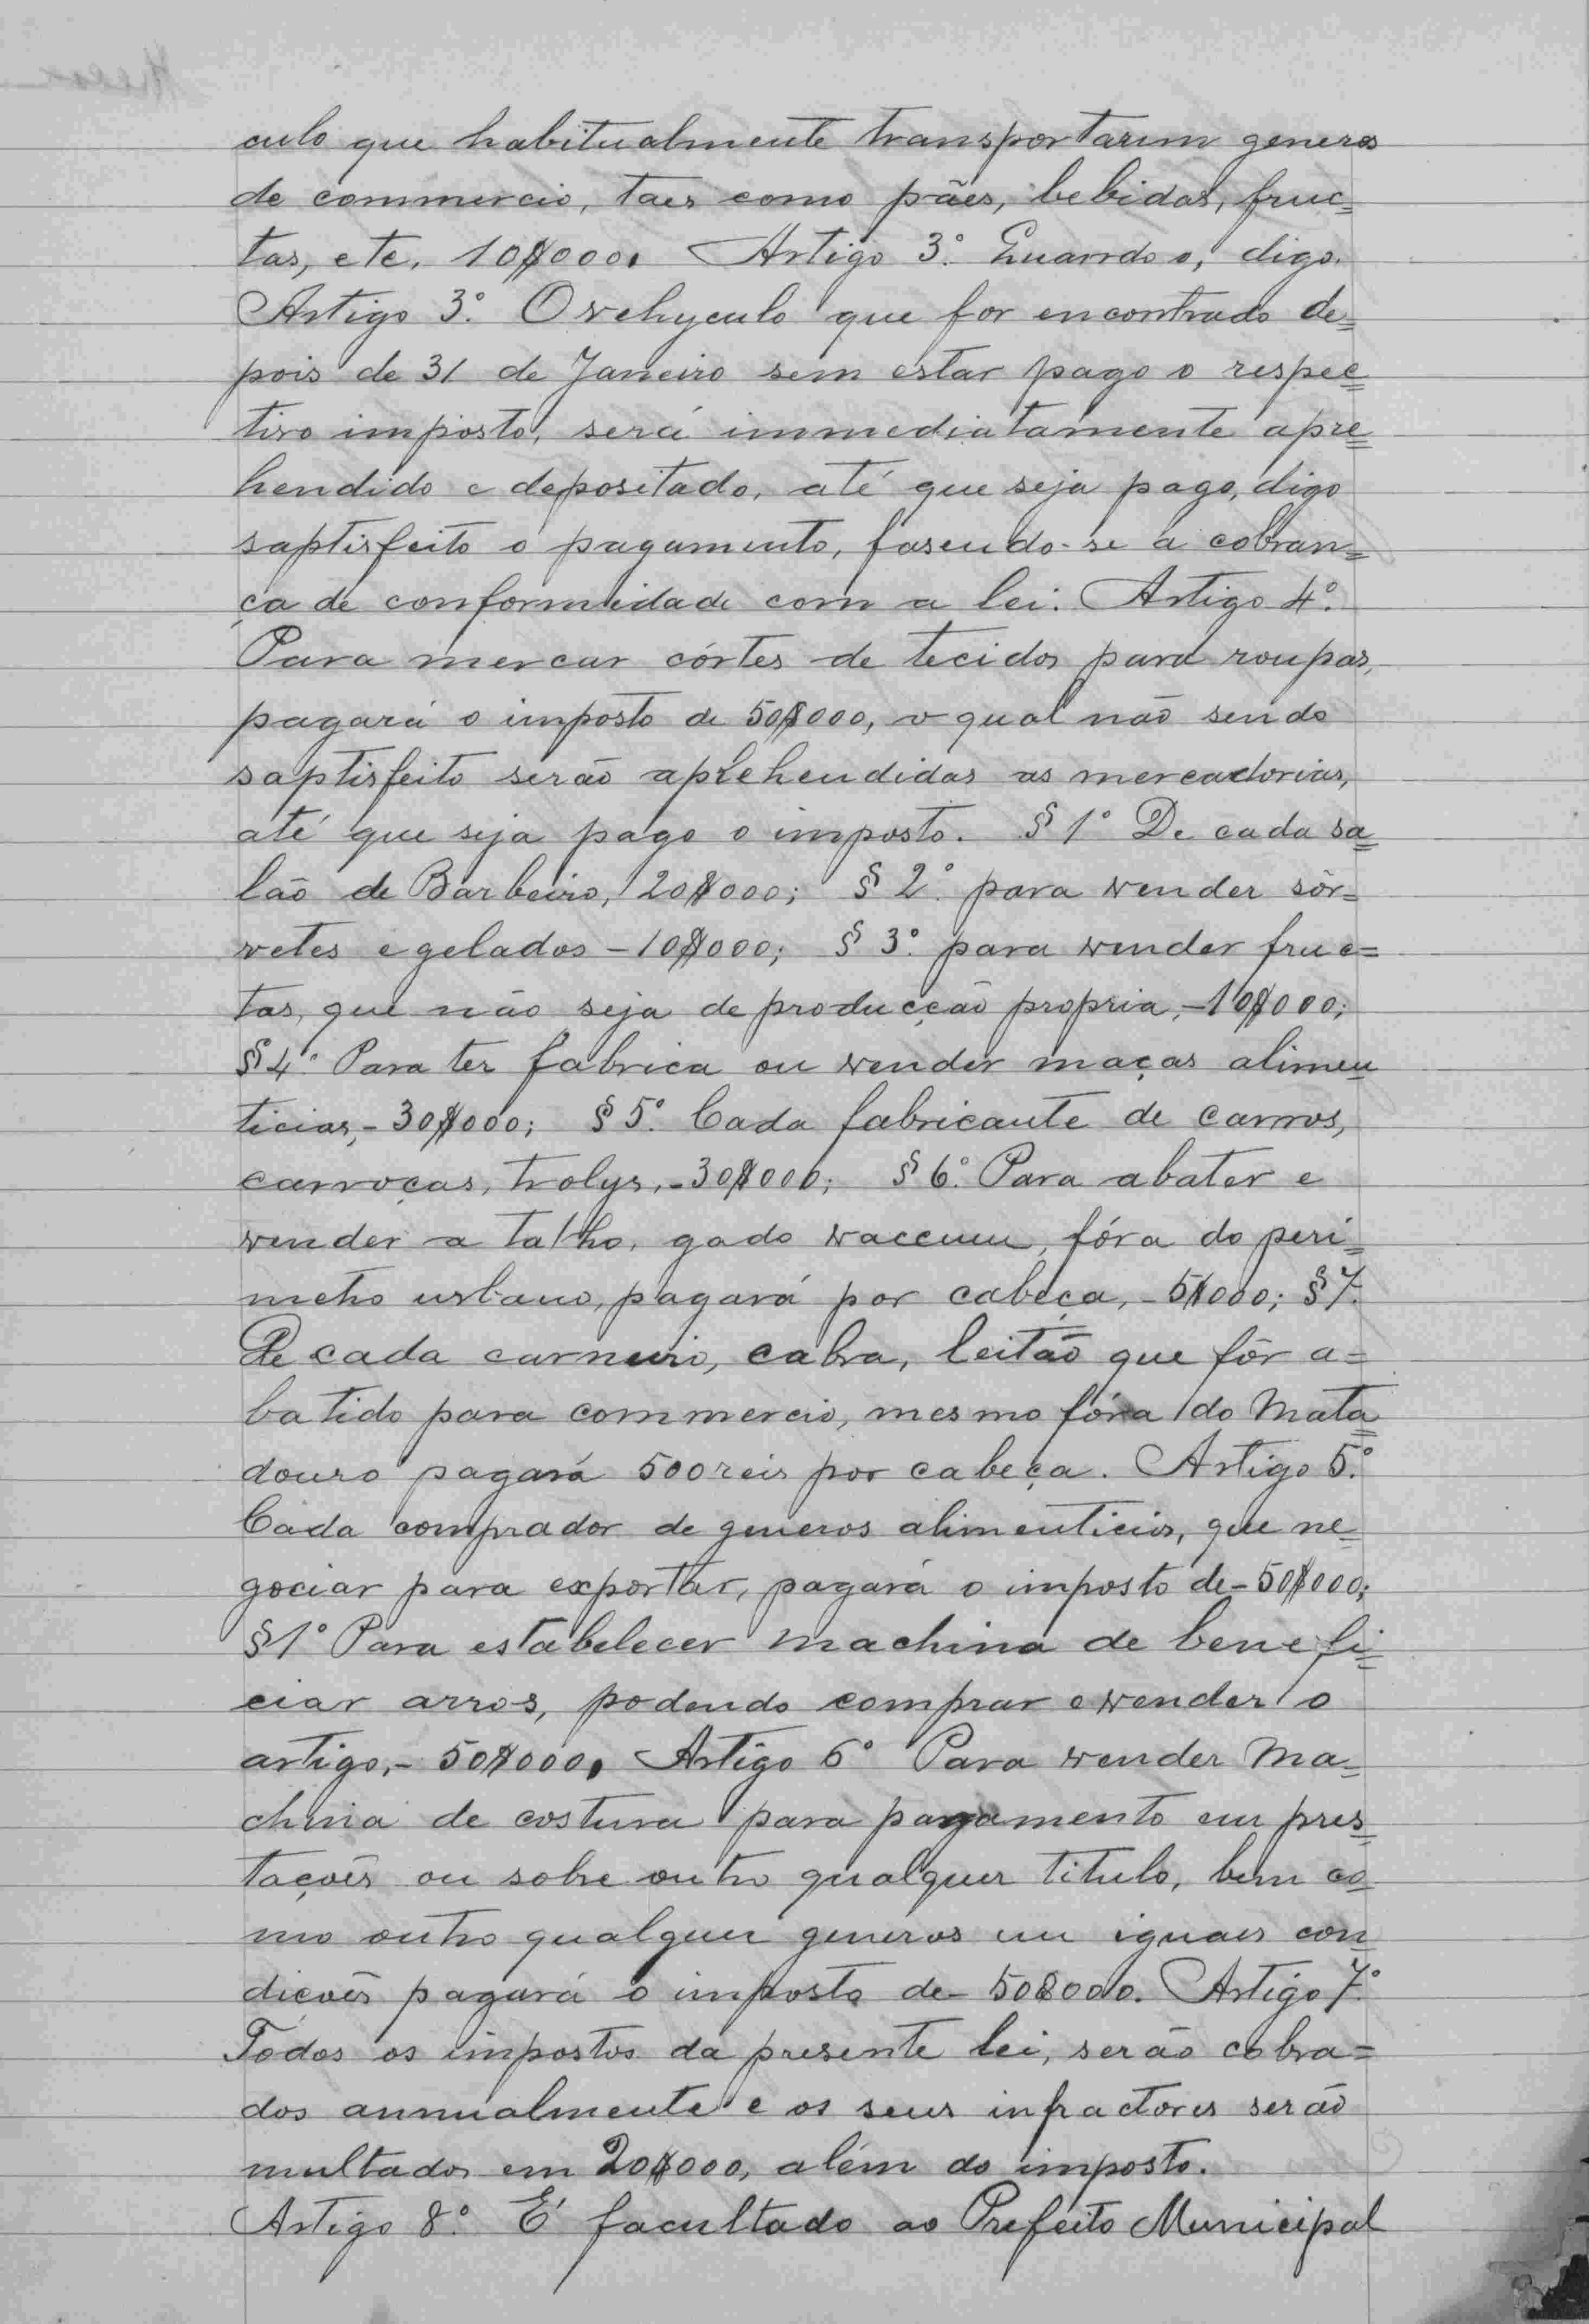 culo que habitualmente transportarem generos
de commercio, taes como pães, bebidas, fruc=
tas, etc. 10$000. Artigo 3º. Quando o, digo.
Artigo 3º. O vehyculo que for encontrado de=
pois de 31 de Janeiro sem estar pago o respec=
tivo imposto, será immediatamente apre=
hendido e depositado, até que seja pago, digo
saptisfeito o pagamento, fasendo-se a cobran=
ça de conformidade com a lei. Artigo 4º.
Para mercar córtes de tecidos para roupas,
pagará o imposto de 50$000, o qual não sendo
saptisfeito serão aprehendidas as mercadorias,
até que seja pago o imposto. § 1º De cada sa=
lão de Barbeiro, 20$000; § 2º. para vender sôr=
vetes e gelados - 10$000; § 3º. para vender fruc=
tas, que não seja de producção propria, - 10$000;
§ 4º. Para ter fabrica ou vender maças alimen
ticias, - 30$000; § 5º. Cada fabricante de carros,
carroças, trolys, - 30$000; § 6º. Para abater e
vender a talho, gado vaccum, fóra do peri=
metro urbano, pagará por cabeça, - 5$000; § 7.
De cada carneiro, cabra, leitão que fôr a=
batido para commercio, mesmo fóra do Mata=
douro pagará 500 reis por cabeça. Artigo 5º.
Cada comprador de generos alimenticios, que ne=
gociar para exportar, pagará o imposto de - 50$000;
§ 1º Para estabelecer machina de benefi=
ciar arros, podendo comprar e vender o
artigo, - 50$000. Artigo 6º Para vender ma=
china de costura para pagamento em pres=
tações ou sobre outro qualquer titulo, bem co=
mo outro qualquer generos em iguaes con=
dicões pagará o imposto de - 50$000. Artigo 7º.
Todos os impostos da presente lei, serão cobra=
dos annualmente e os seus infractores serão
multados em 20$000, além do imposto.
Artigo 8º. É facultado ao Prefeito Municipal